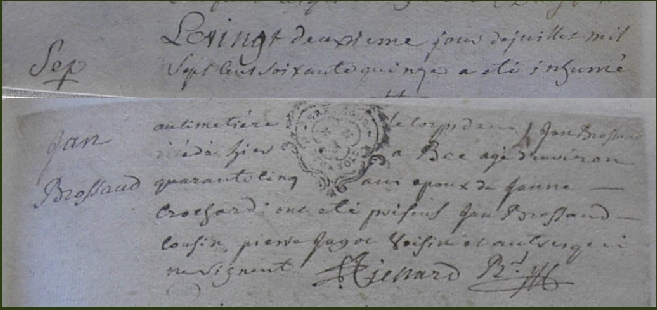 Sep
Le vingt deuxieme jour de juillet mil
Sept Cent Soixante quinze a été inhumé
Jan
Brossaud
au cimetiére le corps de Jan Brossaud
décédé hier a agé d'environ
quarante Cinq ans epoux de Janne
Crochard ont eté présens Jan Brossaud
Cousin, pierre Voisin et autres qui
ne Signent